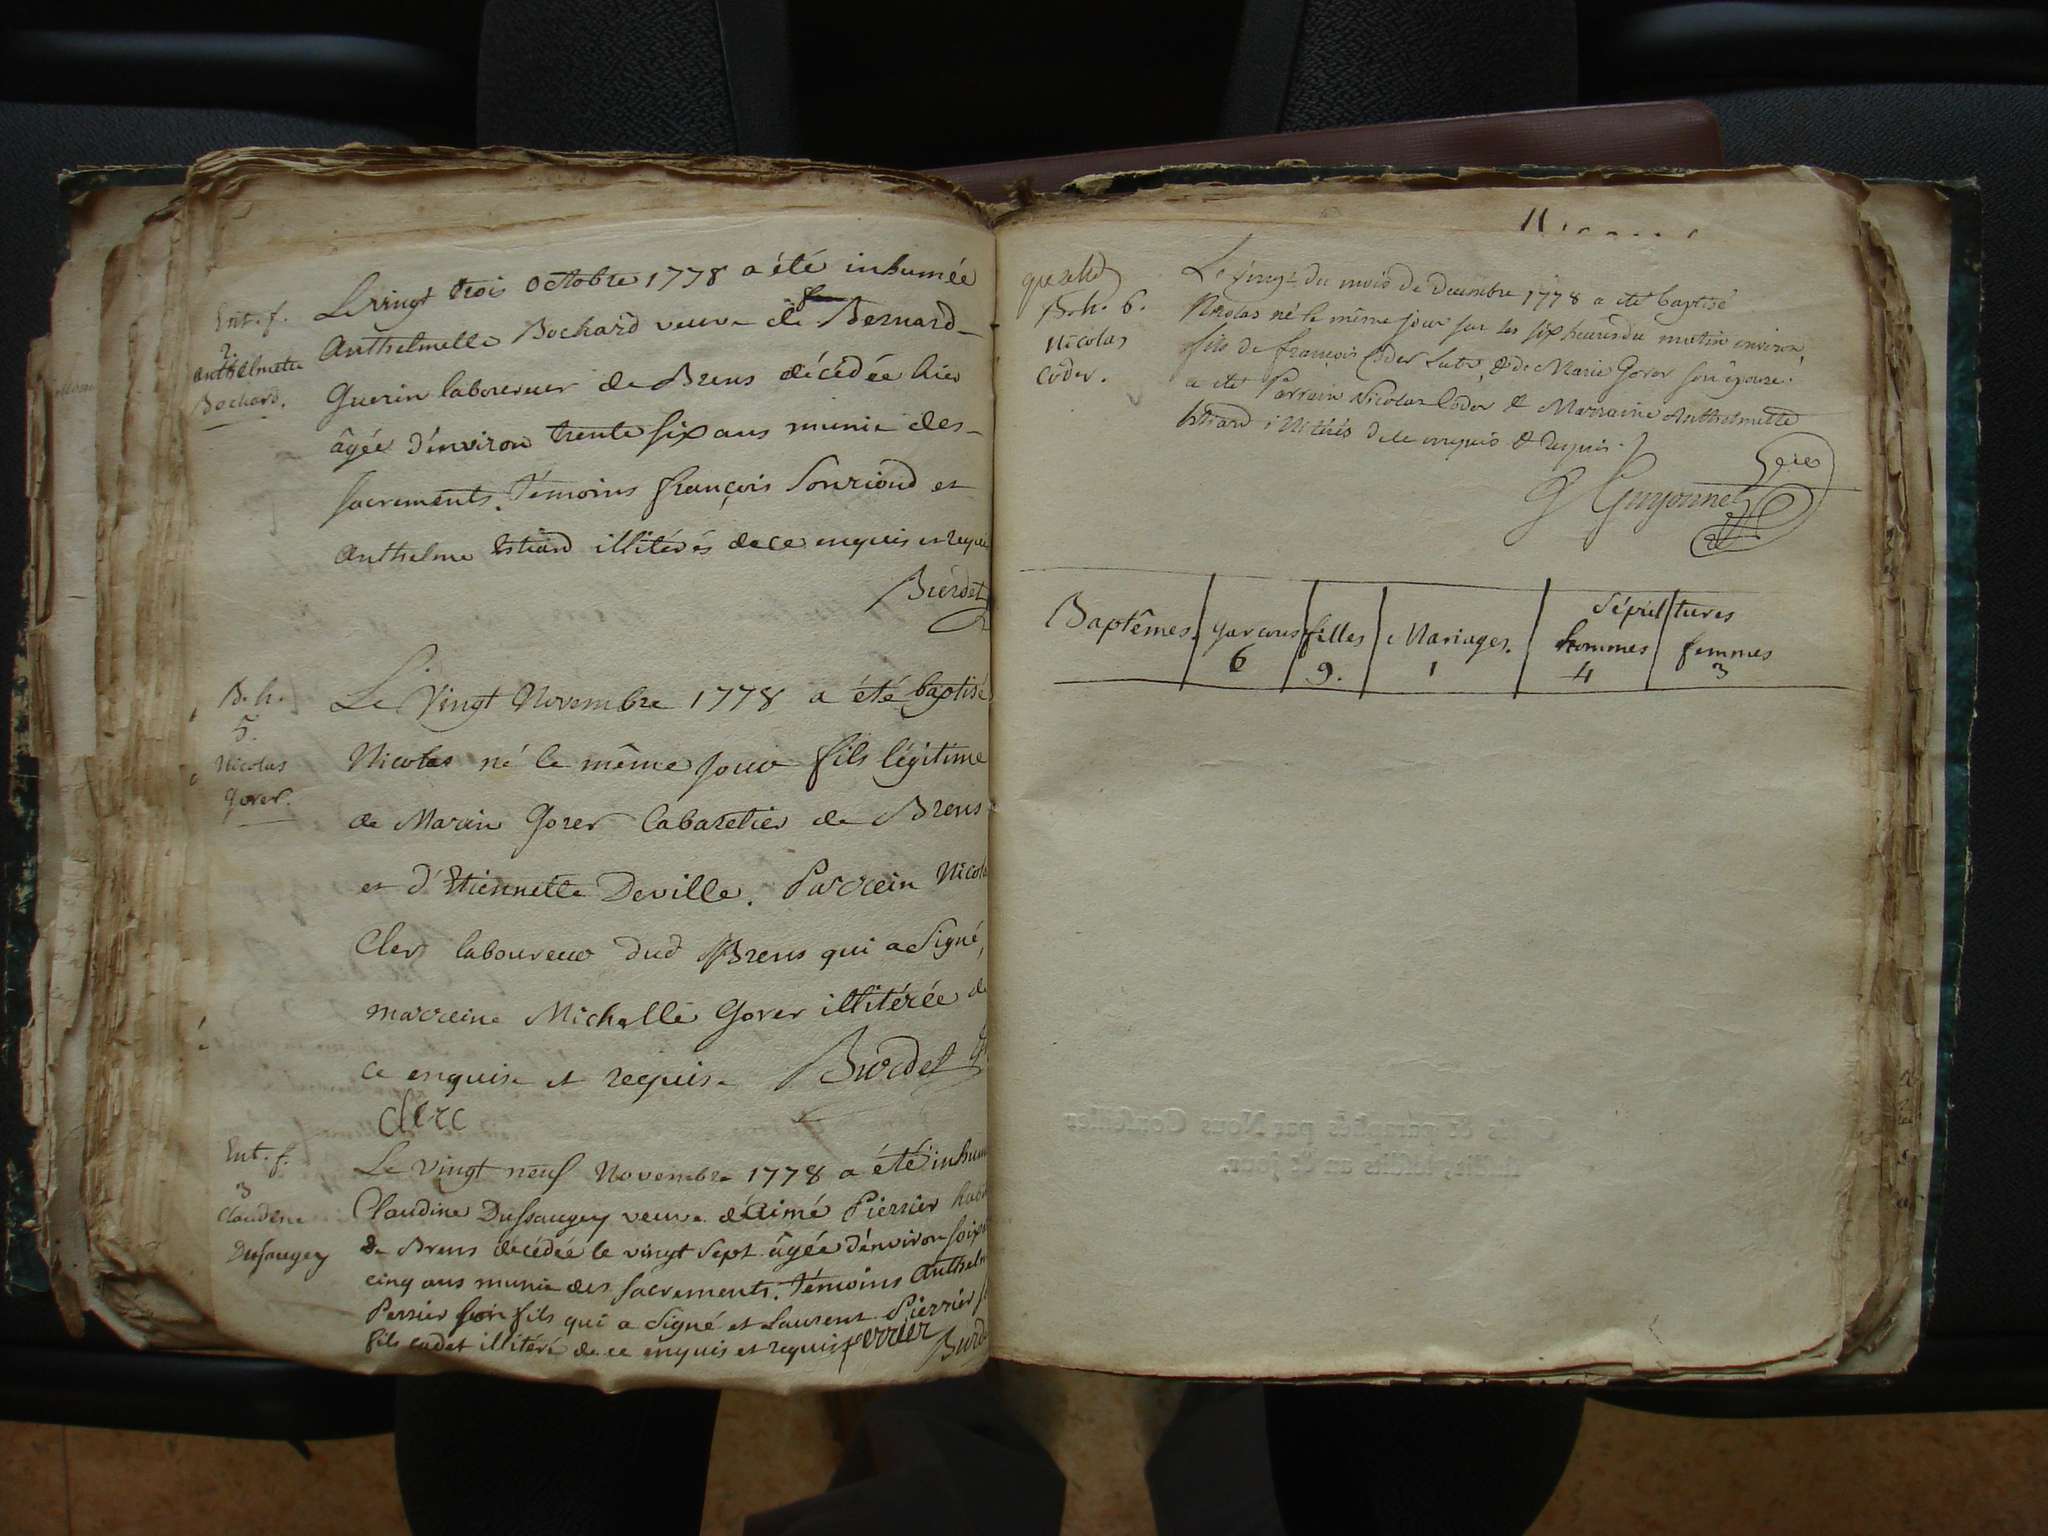 Ent. f.
2
Anthelmette
Bochard.
Le vingt trois octobre 1778 a été inhumée
Anthelmelle Bochard veuve de feu Bernard
Guerin laboureur de Brens décédée hier
âgée d'environ trente six ans munie des
sacrements. Témoins françois Sonriond et
Anthelme Estiard illitérés de ce enquis et requis
Burdet
B. h.
5.
Nicolas
Gorer.
Le Vingt Novembre 1778 a été baptisé
Nicolas né le même jour fils légitime
de Marin Gorer Cabaretier de Brens
et d'Etiennette Deville. Parrein Nicolas
Clerc laboureur dud Brens qui a Signé,
marreine Michelle Gorer illitérée de
ce enquise et requise Burdet
clerc
Ent. f.
3
Claudine
Dussaugey
Le vingt neuf Novembre 1778 a été inhum
Claudine Dussaugey veuve d'Aimé Pierrier hab
de Brens décédée le vingt Sept âgée d'environ soix
cinq ans munie des sacrements. Témoins Anthelm
Perrier son fils qui a Signé et Laurent Pierrier
fils cadet illitéré de ce enquis et requis perrier Burde
B. h. 6.
Nicolas
Coder.
Le vingt du mois de Decembre 1778 a eté baptisé
Nicolas né le même jour sur les six heures du matin environ,
fils de françois Coder Lab.r & de Marie Gorer son épouse.
a eté Parrain Nicolas Coder & Marraine Anthelmette
Estiard illitérés de ce enquis & requis.
Guyonnet
Baptêmes. | garçons | filles | Mariages. | Sépultures
hommes | femmes
6 | 9. | 1 | 4 | 3